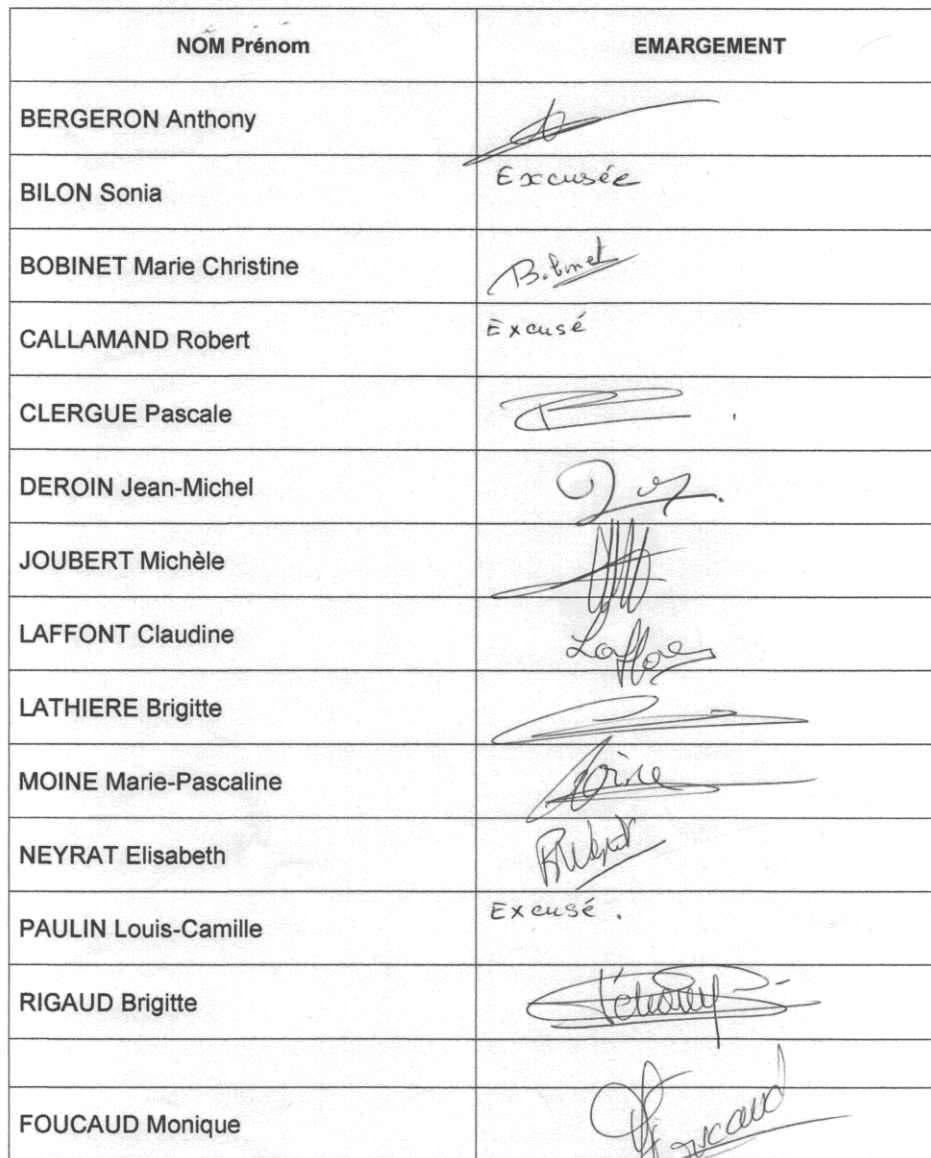 NOM Prénom EMARGEMENT
BERGERON Anthony
BILON Sonia Excusée
BOBINET Marie Christine Bobinet
CALLAMAND Robert Excusé
CLERGUE Pascale
DEROIN Jean-Michel
JOUBERT Michèle
LAFFONT Claudine
LATHIERE Brigitte
MOINE Marie-Pascaline Moine
NEYRAT Elisabeth
PAULIN Louis-Camille Excusé.
RIGAUD Brigitte
FOUCAUD Monique Foucaud